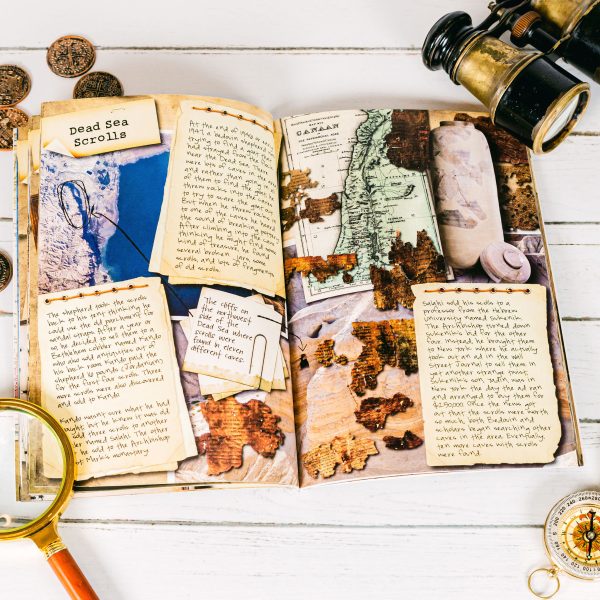 Dead Sea
Scrolls
At the end of 1946 or
1947 a bedouin shepherd was
trying to find a goat that
had strayed from the herd
near the Dead Sea. There
were lots of caves in the area
and rather than go in all
of them to find the goat he
threw rocks into the caves
to try to scare the goat out.
But when he threw rocks in
to one of the caves he heard
the sound of breaking pottery.
After climbing into the cave
thinking he might find some
kind of treasure, he found
several broken jars, some
scrolls and lots of fragments
of old scrolls.
The shepherd took the scrolls
back to his tent thinking he
could use the old parchment for
sandal straps. After a year or
so, he decided to sell them to a
Bethlehem cobbler named Kando
who also sold antiquities out of
his back room. Kando paid the
shepherd 16 pounds (Jordanian)
for the first four scrolls. Three
more scrolls were also discovered
and sold to Kando.
Kando wasn't sure what he had
bought but he knew it was old
sold some scrolls to another
named Salahi. The other
he sold to the Archbishop
of St. Mark's monastery.
The cliffs on
the northwest
side of the
Dead Sea where
scrolls were
found in eleven
different caves.
CANAAN
Salahi sold his scrolls to a
professor from the Hebrew
University named Sukenik.
The Archbishop turned down
Sukenik's bid for the other
four. Instead he brought them
to New York where he actually
took out an ad in the Wall
Street Journal to sell them. In
yet another strange twist,
Sukenik's son, Yadin, was in
New York the day the ad ran
and arranged to buy them for
$250,000. Once the news got
out that the scrolls were worth
so much, both Bedouin and
scholars began searching other
caves in the area. Eventually,
ten more caves with scrolls
were found.